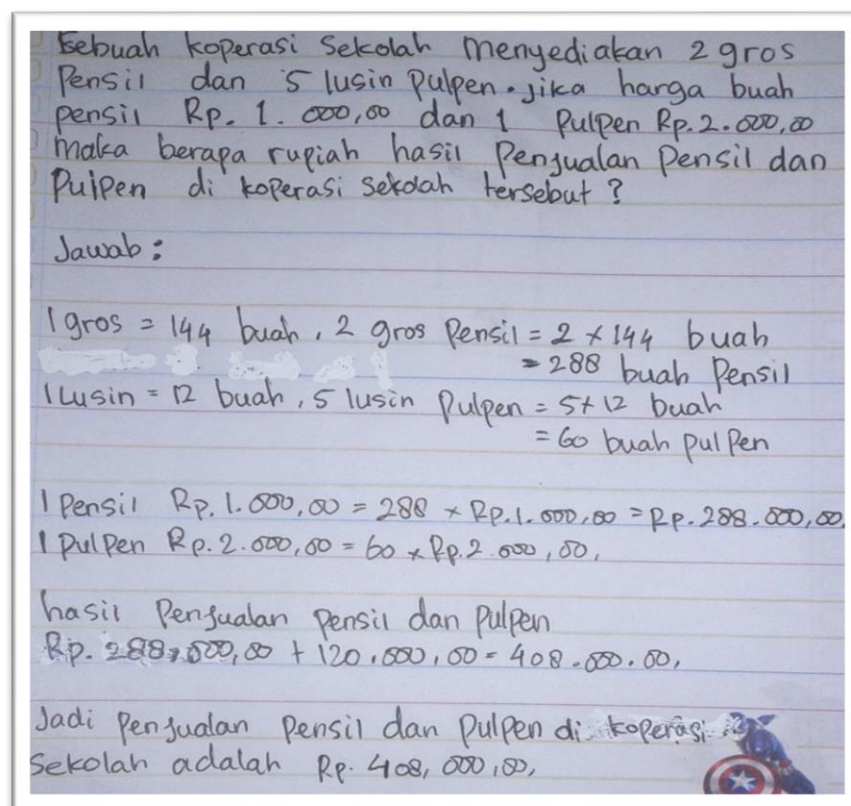 Sebuah koperasi Sekolah menyediakan 2 gros
Pensil dan 5 lusin Pulpen. jika harga buah
pensil Rp. 1.000,00 dan 1 Pulpen Rp.2.000,00
maka berapa rupiah hasil Penjualan Pensil dan
Pulpen di koperasi sekolah tersebut ?
Jawab :
1 gros = 144 buah, 2 gros Pensil = 2 x 144 buah
= 288 buah Pensil
1 Lusin = 12 buah, 5 lusin Pulpen = 5 x 12 buah
= 60 buah pulPen
1 Pensil Rp. 1.000,00 = 288 x Rp.1.000,00 = Rp. 288.000,00.
1 Pulpen Rp. 2.000,00 = 60 x Rp.2.000,00,
hasil Penjualan pensil dan Pulpen
Rp. 288,000,00 + 120.000,00 = 408.000.00,
Jadi penjualan Pensil dan Pulpen di koperasi
Sekolah adalah Rp. 408,000,00,